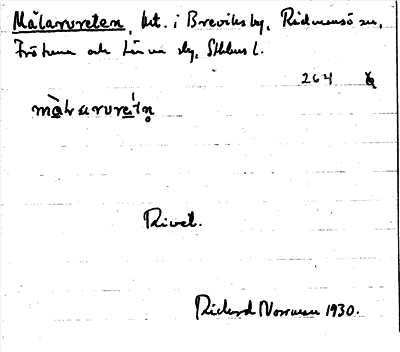 Målarvreten, hit. i Breviks by, Ridmansö sn,
Frö husa och Länna sky, Sthlms l.
264
målarvretn
Rivet.
Rickard Norrman 1930.